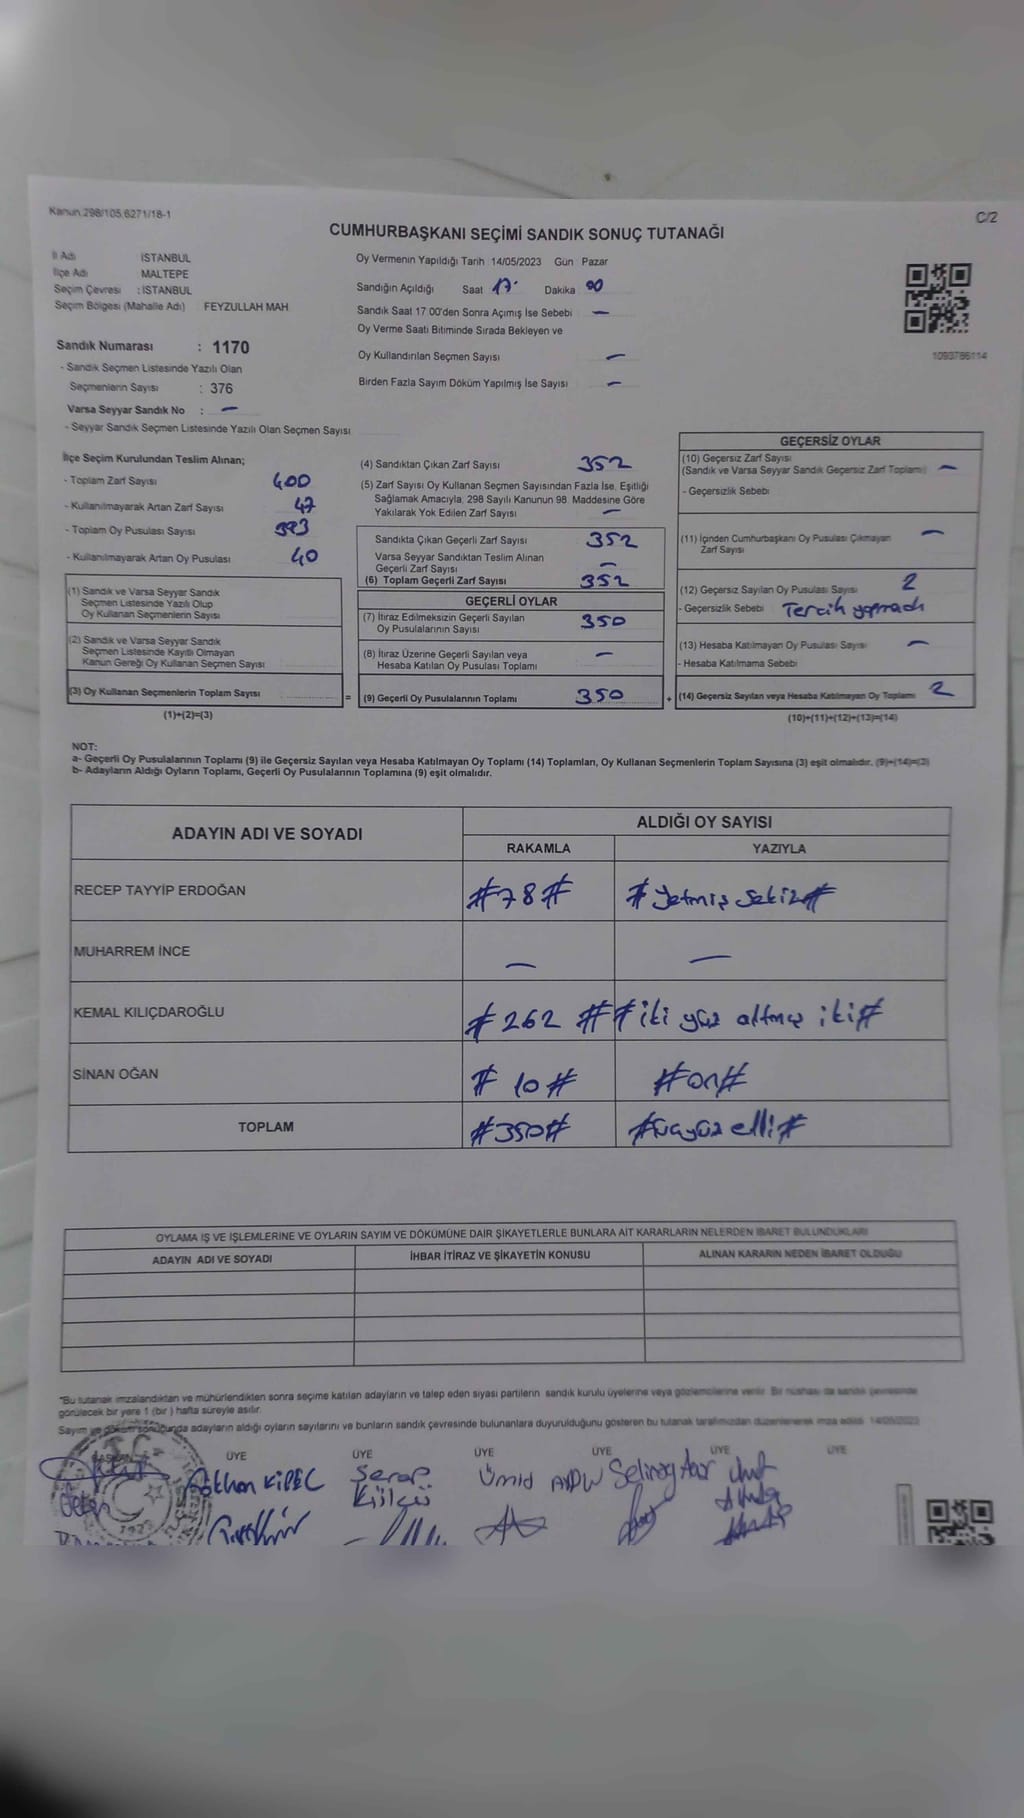 Kanun.298/105,6271/18-1
C/2
CUMHURBAŞKANI SEÇİMİ SANDIK SONUÇ TUTANAĞI
İl Adı İSTANBUL
İlçe Adı MALTEPE
Seçim Çevresi : İSTANBUL
Seçim Bölgesi (Mahalle Adı) FEYZULLAH MAH
Sandık Numarası : 1170
- Sandık Seçmen Listesinde Yazılı Olan
Seçmenlerin Sayısı : 376
Varsa Seyyar Sandık No : -
- Seyyar Sandık Seçmen Listesinde Yazılı Olan Seçmen Sayısı
Oy Vermenin Yapıldığı Tarih 14/05/2023 Gün Pazar
Sandığın Açıldığı Saat 17 Dakika 00
Sandık Saat 17.00'den Sonra Açımış İse Sebebi -
Oy Verme Saati Bitiminde Sırada Bekleyen ve
Oy Kullandırılan Seçmen Sayısı -
Birden Fazla Sayım Döküm Yapılmış İse Sayısı -
1093786114
İlçe Seçim Kurulundan Teslim Alınan;
- Toplam Zarf Sayısı 400
- Kullanılmayarak Artan Zarf Sayısı 47
- Toplam Oy Pusulası Sayısı 393
- Kullanılmayarak Artan Oy Pusulası 40
(1) Sandık ve Varsa Seyyar Sandık
Seçmen Listesinde Yazılı Olup
Oy Kullanan Seçmenlerin Sayısı
(2) Sandık ve Varsa Seyyar Sandık
Seçmen Listesinde Kayıtlı Olmayan
Kanun Gereği Oy Kullanan Seçmen Sayısı
(3) Oy Kullanan Seçmenlerin Toplam Sayısı
(1)+(2)=(3)
(4) Sandıktan Çıkan Zarf Sayısı 352
(5) Zarf Sayısı Oy Kullanan Seçmen Sayısından Fazla İse, Eşitliği
Sağlamak Amacıyla, 298 Sayılı Kanunun 98. Maddesine Göre
Yakılarak Yok Edilen Zarf Sayısı -
Sandıkta Çıkan Geçerli Zarf Sayısı 352
Varsa Seyyar Sandıktan Teslim Alınan
Geçerli Zarf Sayısı -
(6) Toplam Geçerli Zarf Sayısı 352
GEÇERLİ OYLAR
(7) İtiraz Edilmeksizin Geçerli Sayılan
Oy Pusulalarının Sayısı 350
(8) İtiraz Üzerine Geçerli Sayılan veya
Hesaba Katılan Oy Pusulası Toplamı -
= (9) Geçerli Oy Pusulalarının Toplamı 350 +
GEÇERSİZ OYLAR
(10) Geçersiz Zarf Sayısı
(Sandık ve Varsa Seyyar Sandık Geçersiz Zarf Toplamı) -
- Geçersizlik Sebebi
(11) İçinden Cumhurbaşkanı Oy Pusulası Çıkmayan
Zarf Sayısı -
(12) Geçersiz Sayılan Oy Pusulası Sayısı 2
- Geçersizlik Sebebi Tercih yapmadı
(13) Hesaba Katılmayan Oy Pusulası Sayısı -
- Hesaba Katılmama Sebebi
(14) Geçersiz Sayılan veya Hesaba Katılmayan Oy Toplamı 2
(10)+(11)+(12)+(13)=(14)
NOT:
a- Geçerli Oy Pusulalarının Toplamı (9) ile Geçersiz Sayılan veya Hesaba Katılmayan Oy Toplamı (14) Toplamları, Oy Kullanan Seçmenlerin Toplam Sayısına (3) eşit olmalıdır. (9)+(14)=(3)
b- Adayların Aldığı Oyların Toplamı, Geçerli Oy Pusulalarının Toplamına (9) eşit olmalıdır.
ADAYIN ADI VE SOYADI
ALDIĞI OY SAYISI
RAKAMLA YAZIYLA
RECEP TAYYİP ERDOĞAN #78# #Yetmiş sekiz#
MUHARREM İNCE - -
KEMAL KILIÇDAROĞLU #262# #iki yüz altmış iki#
SİNAN OĞAN #10# #on#
TOPLAM #350# #üçyüz elli#
OYLAMA İŞ VE İŞLEMLERİNE VE OYLARIN SAYIM VE DÖKÜMÜNE DAİR ŞİKAYETLERLE BUNLARA AİT KARARLARIN NELERDEN İBARET BULUNDUKLARI
ADAYIN ADI VE SOYADI İHBAR İTİRAZ VE ŞİKAYETİN KONUSU ALINAN KARARIN NEDEN İBARET OLDUĞU
*Bu tutanak imzalandıktan ve mühürlendikten sonra seçime katılan adayların ve talep eden siyasi partilerin sandık kurulu üyelerine veya gözlemcilerine verilir. Bir nüshası da sandık çevresinde
görülecek bir yere 1 (bir) hafta süreyle asılır.
Sayım ve döküm sonucunda adayların aldığı oyların sayılarını ve bunların sandık çevresinde bulunanlara duyurulduğunu gösteren bu tutanak tarafımızdan düzenlenerek imza edildi. 14/05/2023
BAŞKAN ÜYE ÜYE ÜYE ÜYE ÜYE ÜYE
Gökhan KİPEÇ Serap Külçü Ümid AYDIN